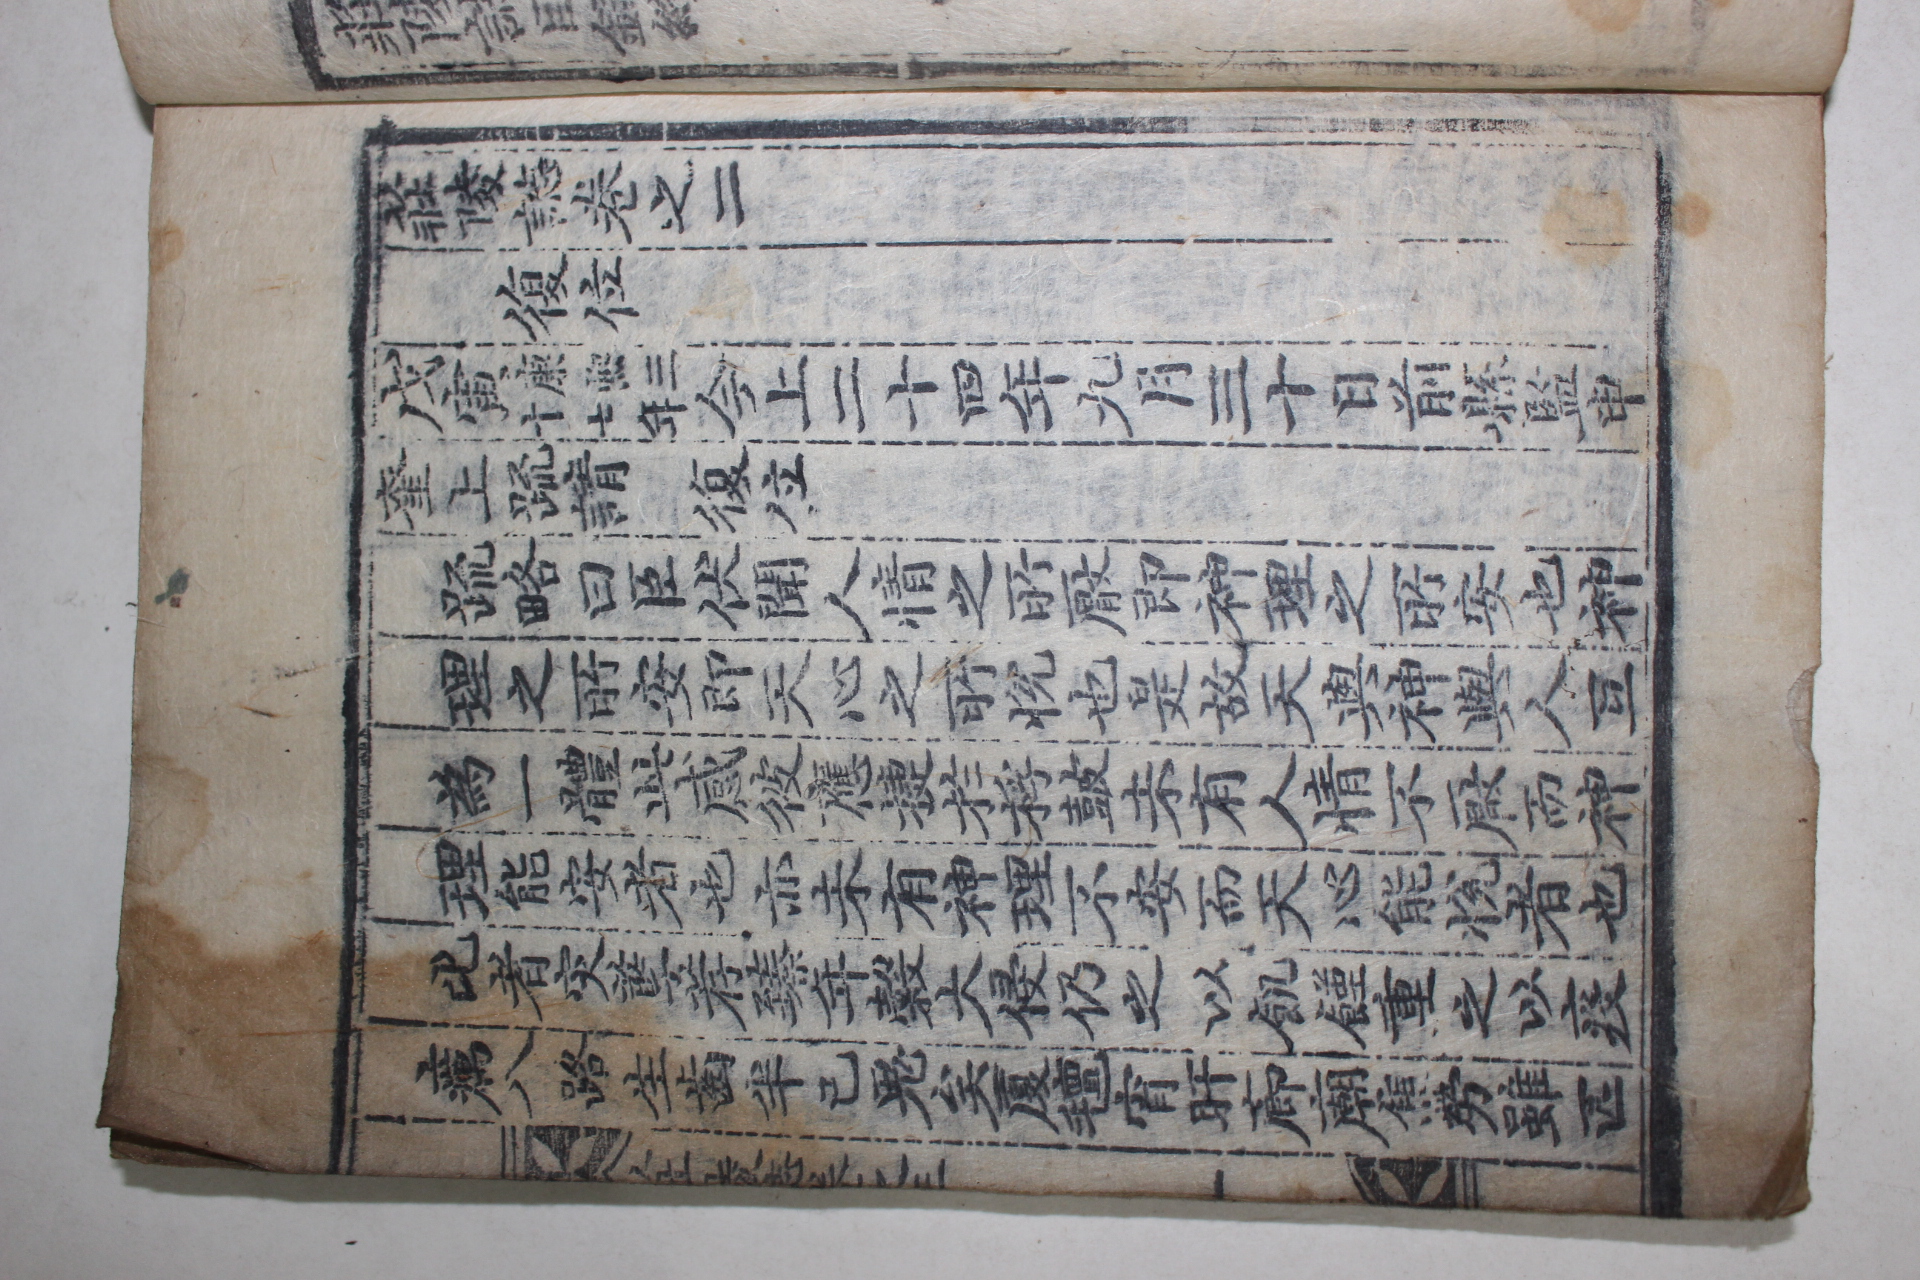 莊陵誌目錄終
莊陵誌卷之二
復位
戊寅康熙三十七年今上二十四年九月三十日前縣監申
奎上疏請 復位
疏略曰臣伏聞人情之所厭即神理之所安也神
理之所安即天心之所悅也是故天與神與人亘
為一體此感彼應捷於桴鼓未有人情不厭而神
理能安者也亦未有神理不安而天心能悅者也
比者灾荐臻年穀大侵仍之以飢饉重之以疫
癘八路生齒半已鬼矣厦氊宵旰廊廟焦勞雖匹
莊陵誌卷之二
一